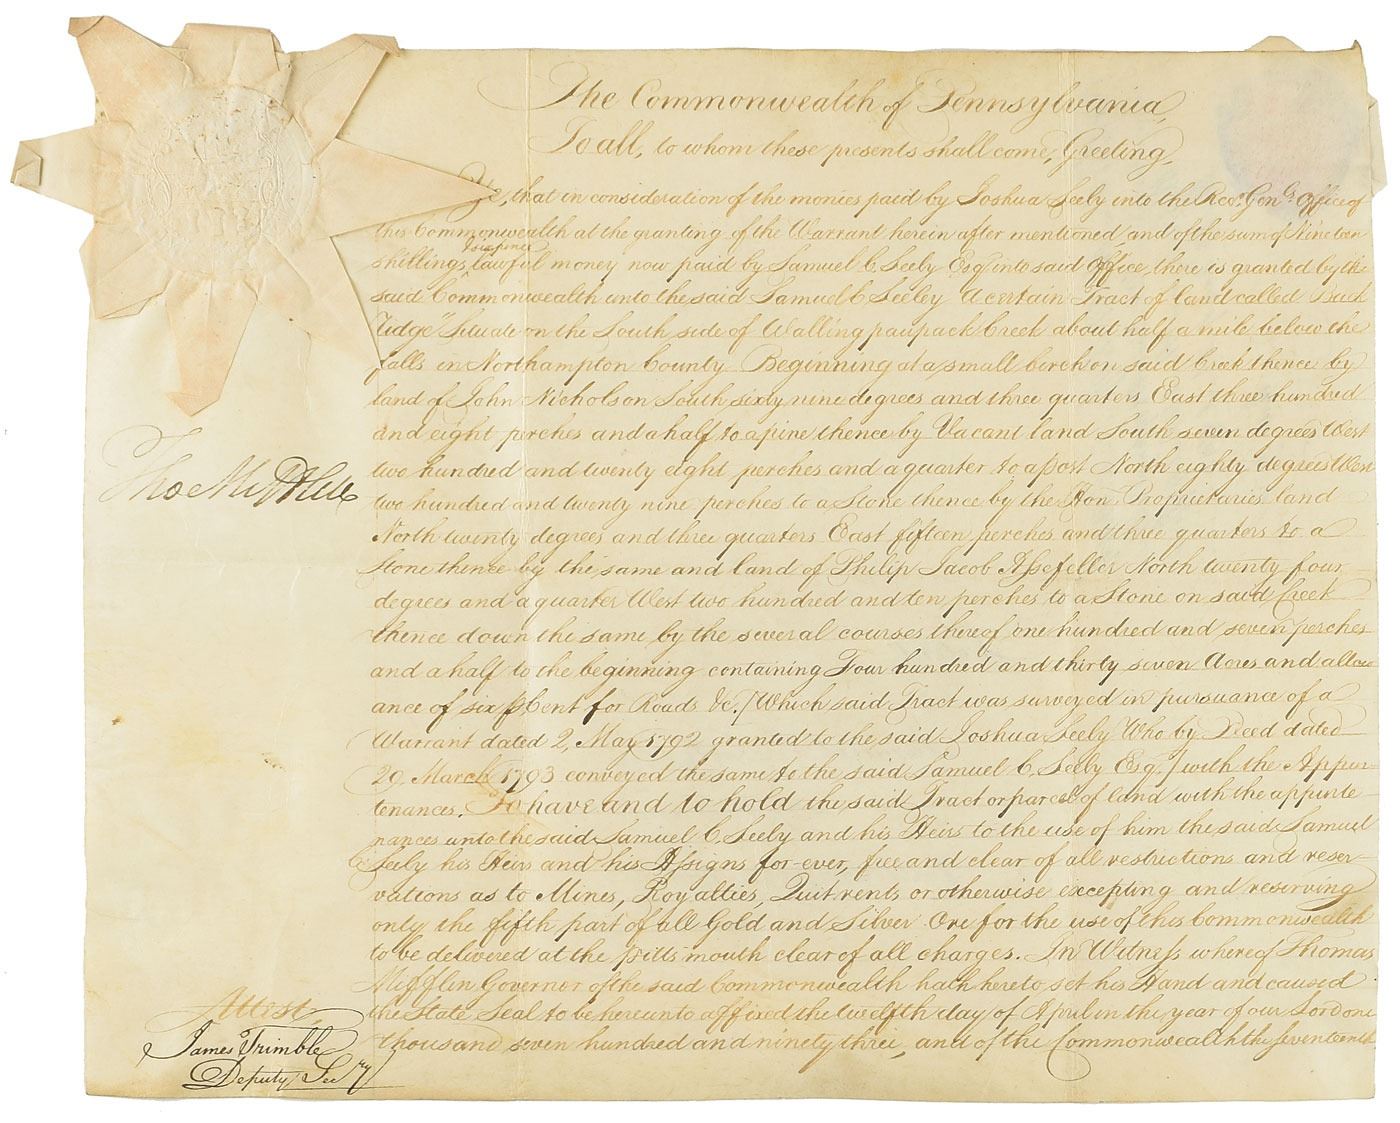 The Commonwealth of Pennsylvania,
To all, to whom these presents shall come, Greeting,
Ye, that in consideration of the monies paid by Joshua Seely into the Recr. Genls. Office of
this Commonwealth at the granting of the Warrant herein after mentioned, and of the sum of Nineteen
shillings, lawful money now paid by Samuel C. Seely Esqr. into said Office, there is granted by the
said Commonwealth unto the said Samuel C Seeley A certain Tract of land called "Buck
Ridge" Situate on the South side of Walling paupack Creek about half a mile below the
falls in Northampton County Beginning at a small birch on said Creek thence by
land of John Nicholson South sixty nine degrees and three quarters East three hundred
and eight perches and a half to a pine thence by Vacant land South seven degrees West
two hundred and twenty eight perches and a quarter to a post North eighty degrees West
two hundred and twenty nine perches to a Stone thence by the Hon. Proprietaries land
North twenty degrees and three quarters East fifteen perches and three quarters to a
Stone thence by the same and land of Philip Jacob Assefeller North twenty four
degrees and a quarter West two hundred and ten perches to a Stone on said Creek
thence down the same by the several courses thereof one hundred and seven perches
and a half to the beginning containing Four hundred and thirty seven Acres and allow
ance of six p Cent for Roads &c. / Which said Tract was surveyed in pursuance of a
Warrant dated 2, May 1792 granted to the said Joshua Seely Who by Deed dated
29 March 1793 conveyed the same to the said Samuel C. Seely Esqr. / with the Appur-
tenances. To have and to hold the said Tract or parcel of land with the appurte
nances unto the said Samuel C Seely and his Heirs to the use of him the said Samuel
C. Seely his Heirs and his Assigns for-ever, free and clear of all restrictions and reser-
vations as to Mines, Royalties, Quit rents or otherwise excepting and reserving
only the fifth part of all Gold and Silver Ore for the use of this Commonwealth
to be delivered at the pitts mouth clear of all charges. In Witness whereof Thomas
Mifflin Governor of the said Commonwealth hath hereto set his Hand and caused
the State Seal to be hereunto affixed the twelfth day of April in the year of our Lord one
thousand seven hundred and ninety three, and of the Commonwealth the seventeenth
Tho Mifflin
Attest,
James Trimble
Deputy Secry